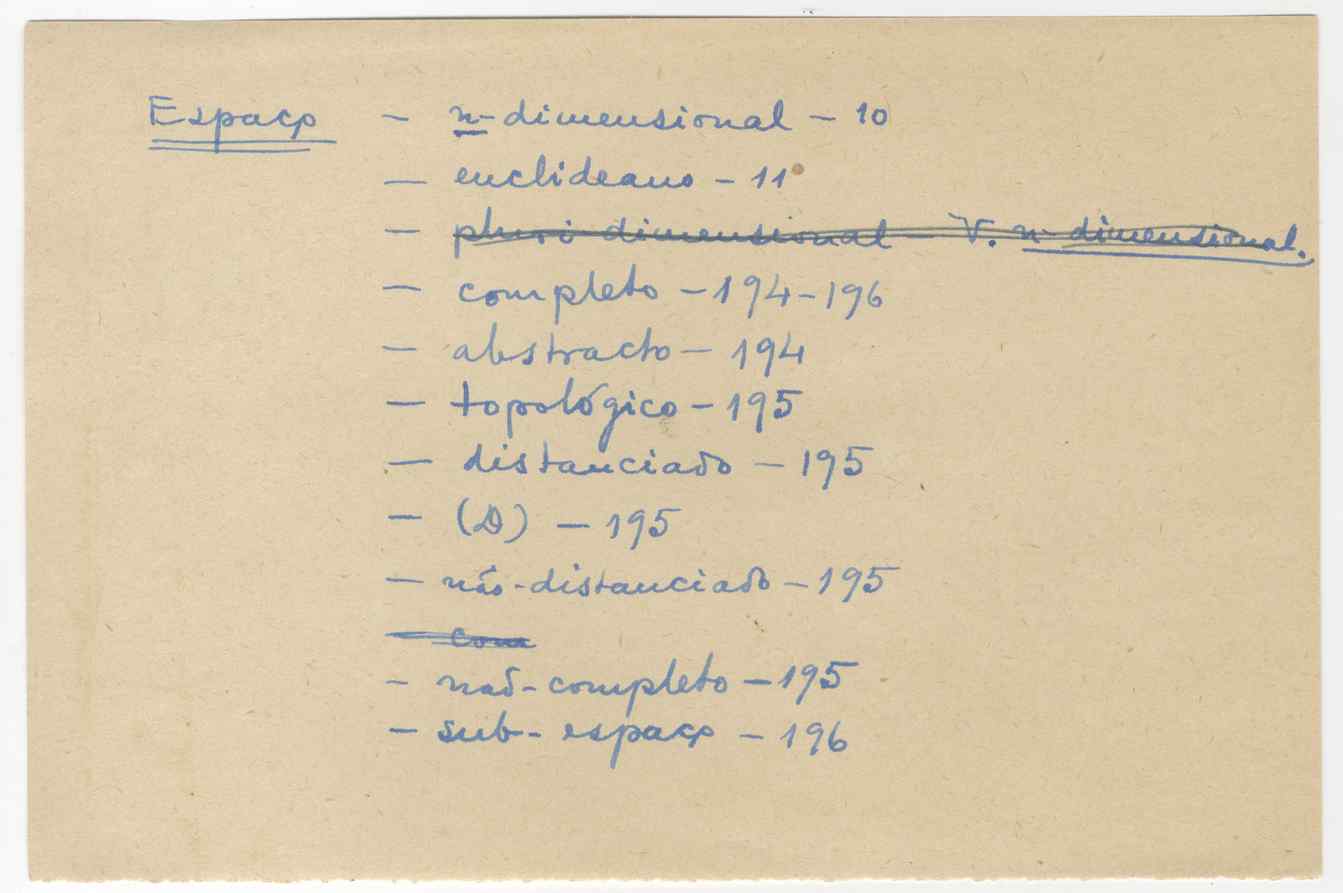 Espaço - n-dimensional - 10
- euclideano - 11
- pluri dimensional - V. n-dimensional.
- completo - 194-196
- abstracto - 194
- topológico - 195
- distanciado - 195
- (D) - 195
- não-distanciado - 195
- com
- não-completo - 195
- sub-espaço - 196